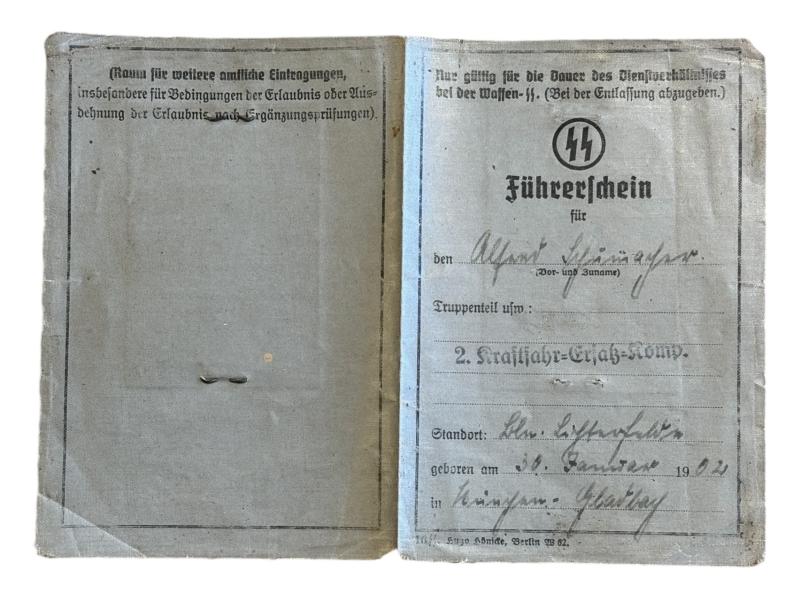 (Raum für weitere amtliche Eintragungen,
insbesondere für Bedingungen der Erlaubnis oder Aus-
dehnung der Erlaubnis nach Ergänzungsprüfungen).
Nur gültig für die Dauer des Dienstverhältnisses
bei der Waffen-SS. (Bei der Entlassung abzugeben.)
SS
Führerschein
für
den Alfred Schumacher.
(Vor- und Zuname)
Truppenteil usw.:
2. Kraftfahr-Ersatz-Komp.
Standort: Bln. Lichterfelde
geboren am 30. Januar 1902
in München-Gladbach
Hugo Hönicke, Berlin W 62.